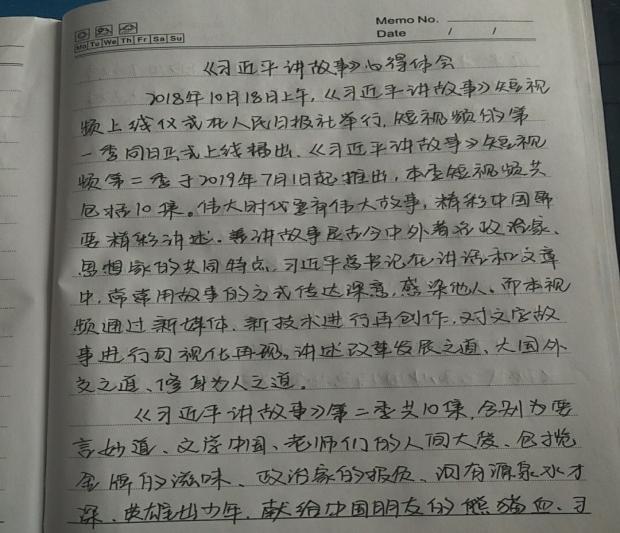 Memo No.
Mo Tu We Th Fr Sa Su
Date / /
《习近平讲故事》心得体会
2018年10月18日上午,《习近平讲故事》短视
频上线仪式在人民日报社举行,短视频的第
一季同日正式上线播出.《习近平讲故事》短视
频第二季于2019年7月1日起推出,本季短视频共
包括10集。伟大时代要有伟大故事,精彩中国需
要精彩讲述.善讲故事是古今中外著名政治家、
思想家的共同特点,习近平总书记在讲话和文章
中,常常用故事的方式传达深意,感染他人、而本视
频通过新媒体、新技术进行再创作,对文字故
事进行可视化再现。讲述改革发展之道、大国外
交之道、修身为人之道。
《习近平讲故事》第二季共10集,分别为要
言妙道、文学中国、老师们的人间大爱、包揽
金牌的滋味、政治家的抱负、洞有源泉水才
深、英雄出少年、献给中国朋友的熊猫血、习